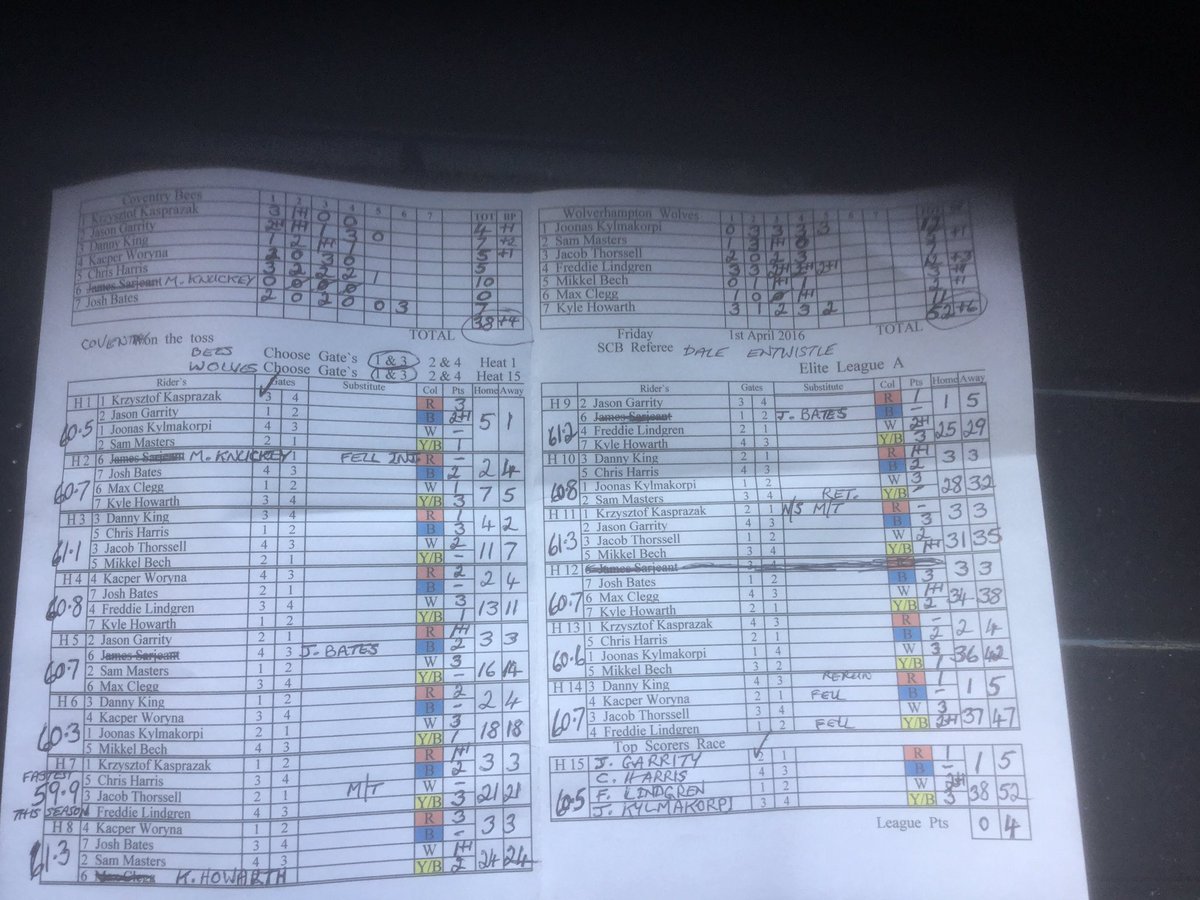 Coventry Bees 1 2 3 4 5 6 7 TOT BP
1 Krzysztof Kasprazak 3 1+1 0 0 4 +1
2 Jason Garrity 2+1 1+1 1 3 0 7 +2
3 Danny King 1 2 1+1 1 5 +1
4 Kacper Woryna 2 0 3 0 5
5 Chris Harris 3 2 2 2 1 10
6 James Sarjeant M. KNUCKEY 0 0 0 0 0
7 Josh Bates 2 0 2 0 0 3 7 -
TOTAL 38+4
Wolverhampton Wolves 1 2 3 4 5 6 7 TOT BP
1 Joonas Kylmakorpi 0 3 3 3 3 12
2 Sam Masters 1 3 1+1 0
3 Jacob Thorssell 2 0 2 3
4 Freddie Lindgren 3 3 2+1 2+1 2+1
5 Mikkel Bech 0 1 1+1 1
6 Max Clegg 1 0 0 1+1
7 Kyle Howarth 3 1 2 3 2 11
TOTAL 52+6
COVENTRY on the toss
BEES Choose Gate`s 1 & 3 2 & 4 Heat 1
WOLVES Choose Gate`s 1 & 3 2 & 4 Heat 15
Friday 1st April 2016
SCB Referee DALE ENTWISTLE
Elite League A
Rider's Gates Substitute Col Pts Home Away
H 1 1 Krzysztof Kasprazak 3 4 R 3 5 1
2 Jason Garrity 1 2 B 2+1
60.5 1 Joonas Kylmakorpi 4 3 W -
2 Sam Masters 2 1 Y/B 1
H 2 6 James Sarjeant M. KNUCKEY 1 2 FELL INJ. R - 2 4
7 Josh Bates 4 3 B 2
60.7 6 Max Clegg 1 2 W 1 7 5
7 Kyle Howarth 3 4 Y/B 3
H 3 3 Danny King 3 4 R 1 4 2
5 Chris Harris 1 2 B 3
61.1 3 Jacob Thorssell 4 3 W 2 11 7
5 Mikkel Bech 2 1 Y/B -
H 4 4 Kacper Woryna 4 3 R 2 2 4
7 Josh Bates 2 1 B -
60.8 4 Freddie Lindgren 3 4 W 3 13 11
7 Kyle Howarth 1 2 Y/B 1
H 5 2 Jason Garrity 2 1 R 1+1 3 3
6 James Sarjeant 4 3 J. BATES B 2
60.7 2 Sam Masters 1 2 W 3 16 14
6 Max Clegg 3 4 Y/B -
H 6 3 Danny King 1 2 R 2 2 4
4 Kacper Woryna 3 4 B -
60.3 1 Joonas Kylmakorpi 2 1 W 3 18 18
5 Mikkel Bech 4 3 Y/B 1
H 7 1 Krzysztof Kasprazak 1 2 R 1+1 3 3
FASTEST 5 Chris Harris 3 4 B 2
59.9 3 Jacob Thorssell 2 1 M/T W - 21 21
THIS SEASON 4 Freddie Lindgren 4 3 Y/B 3
H 8 4 Kacper Woryna 1 2 R 3 3 3
7 Josh Bates 3 4 B -
61.3 2 Sam Masters 4 3 W 1+1 24 24
6 Max Clegg K. HOWARTH Y/B 2
Rider's Gates Substitute Col Pts Home Away
H 9 2 Jason Garrity 3 4 R 1 1 5
6 James Sarjeant 1 2 J. BATES B -
61.2 4 Freddie Lindgren 2 1 W 2+1 25 29
7 Kyle Howarth 4 3 Y/B 3
H 10 3 Danny King 2 1 R 1+1 3 3
5 Chris Harris 4 3 B 2
60.8 1 Joonas Kylmakorpi 1 2 W 3 28 32
2 Sam Masters 3 4 RET. Y/B -
H 11 1 Krzysztof Kasprazak 2 1 N/S M/T R - 3 3
2 Jason Garrity 4 3 B 3
61.3 3 Jacob Thorssell 1 2 W 2 31 35
5 Mikkel Bech 3 4 Y/B 1+1
H 12 6 James Sarjeant 3 4 R 3 3
7 Josh Bates 1 2 B 3
60.7 6 Max Clegg 4 3 W 1+1 34 38
7 Kyle Howarth 2 1 Y/B 2
H 13 1 Krzysztof Kasprazak 4 3 R - 2 4
5 Chris Harris 2 1 B 2
60.6 1 Joonas Kylmakorpi 1 4 W 3 36 42
5 Mikkel Bech 3 2 Y/B 1
H 14 3 Danny King 4 3 RERUN R 1 1 5
4 Kacper Woryna 2 1 FELL B -
60.7 3 Jacob Thorssell 3 4 W 3 37 47
4 Freddie Lindgren 1 2 FELL Y/B 2+1
Top Scorers Race
H 15 J. GARRITY 2 1 R 1 1 5
C. HARRIS 4 3 B -
60.5 F. LINDGREN 1 2 W 2+1 38 52
J. KYLMAKORPI 3 4 Y/B 3
League Pts 0 4